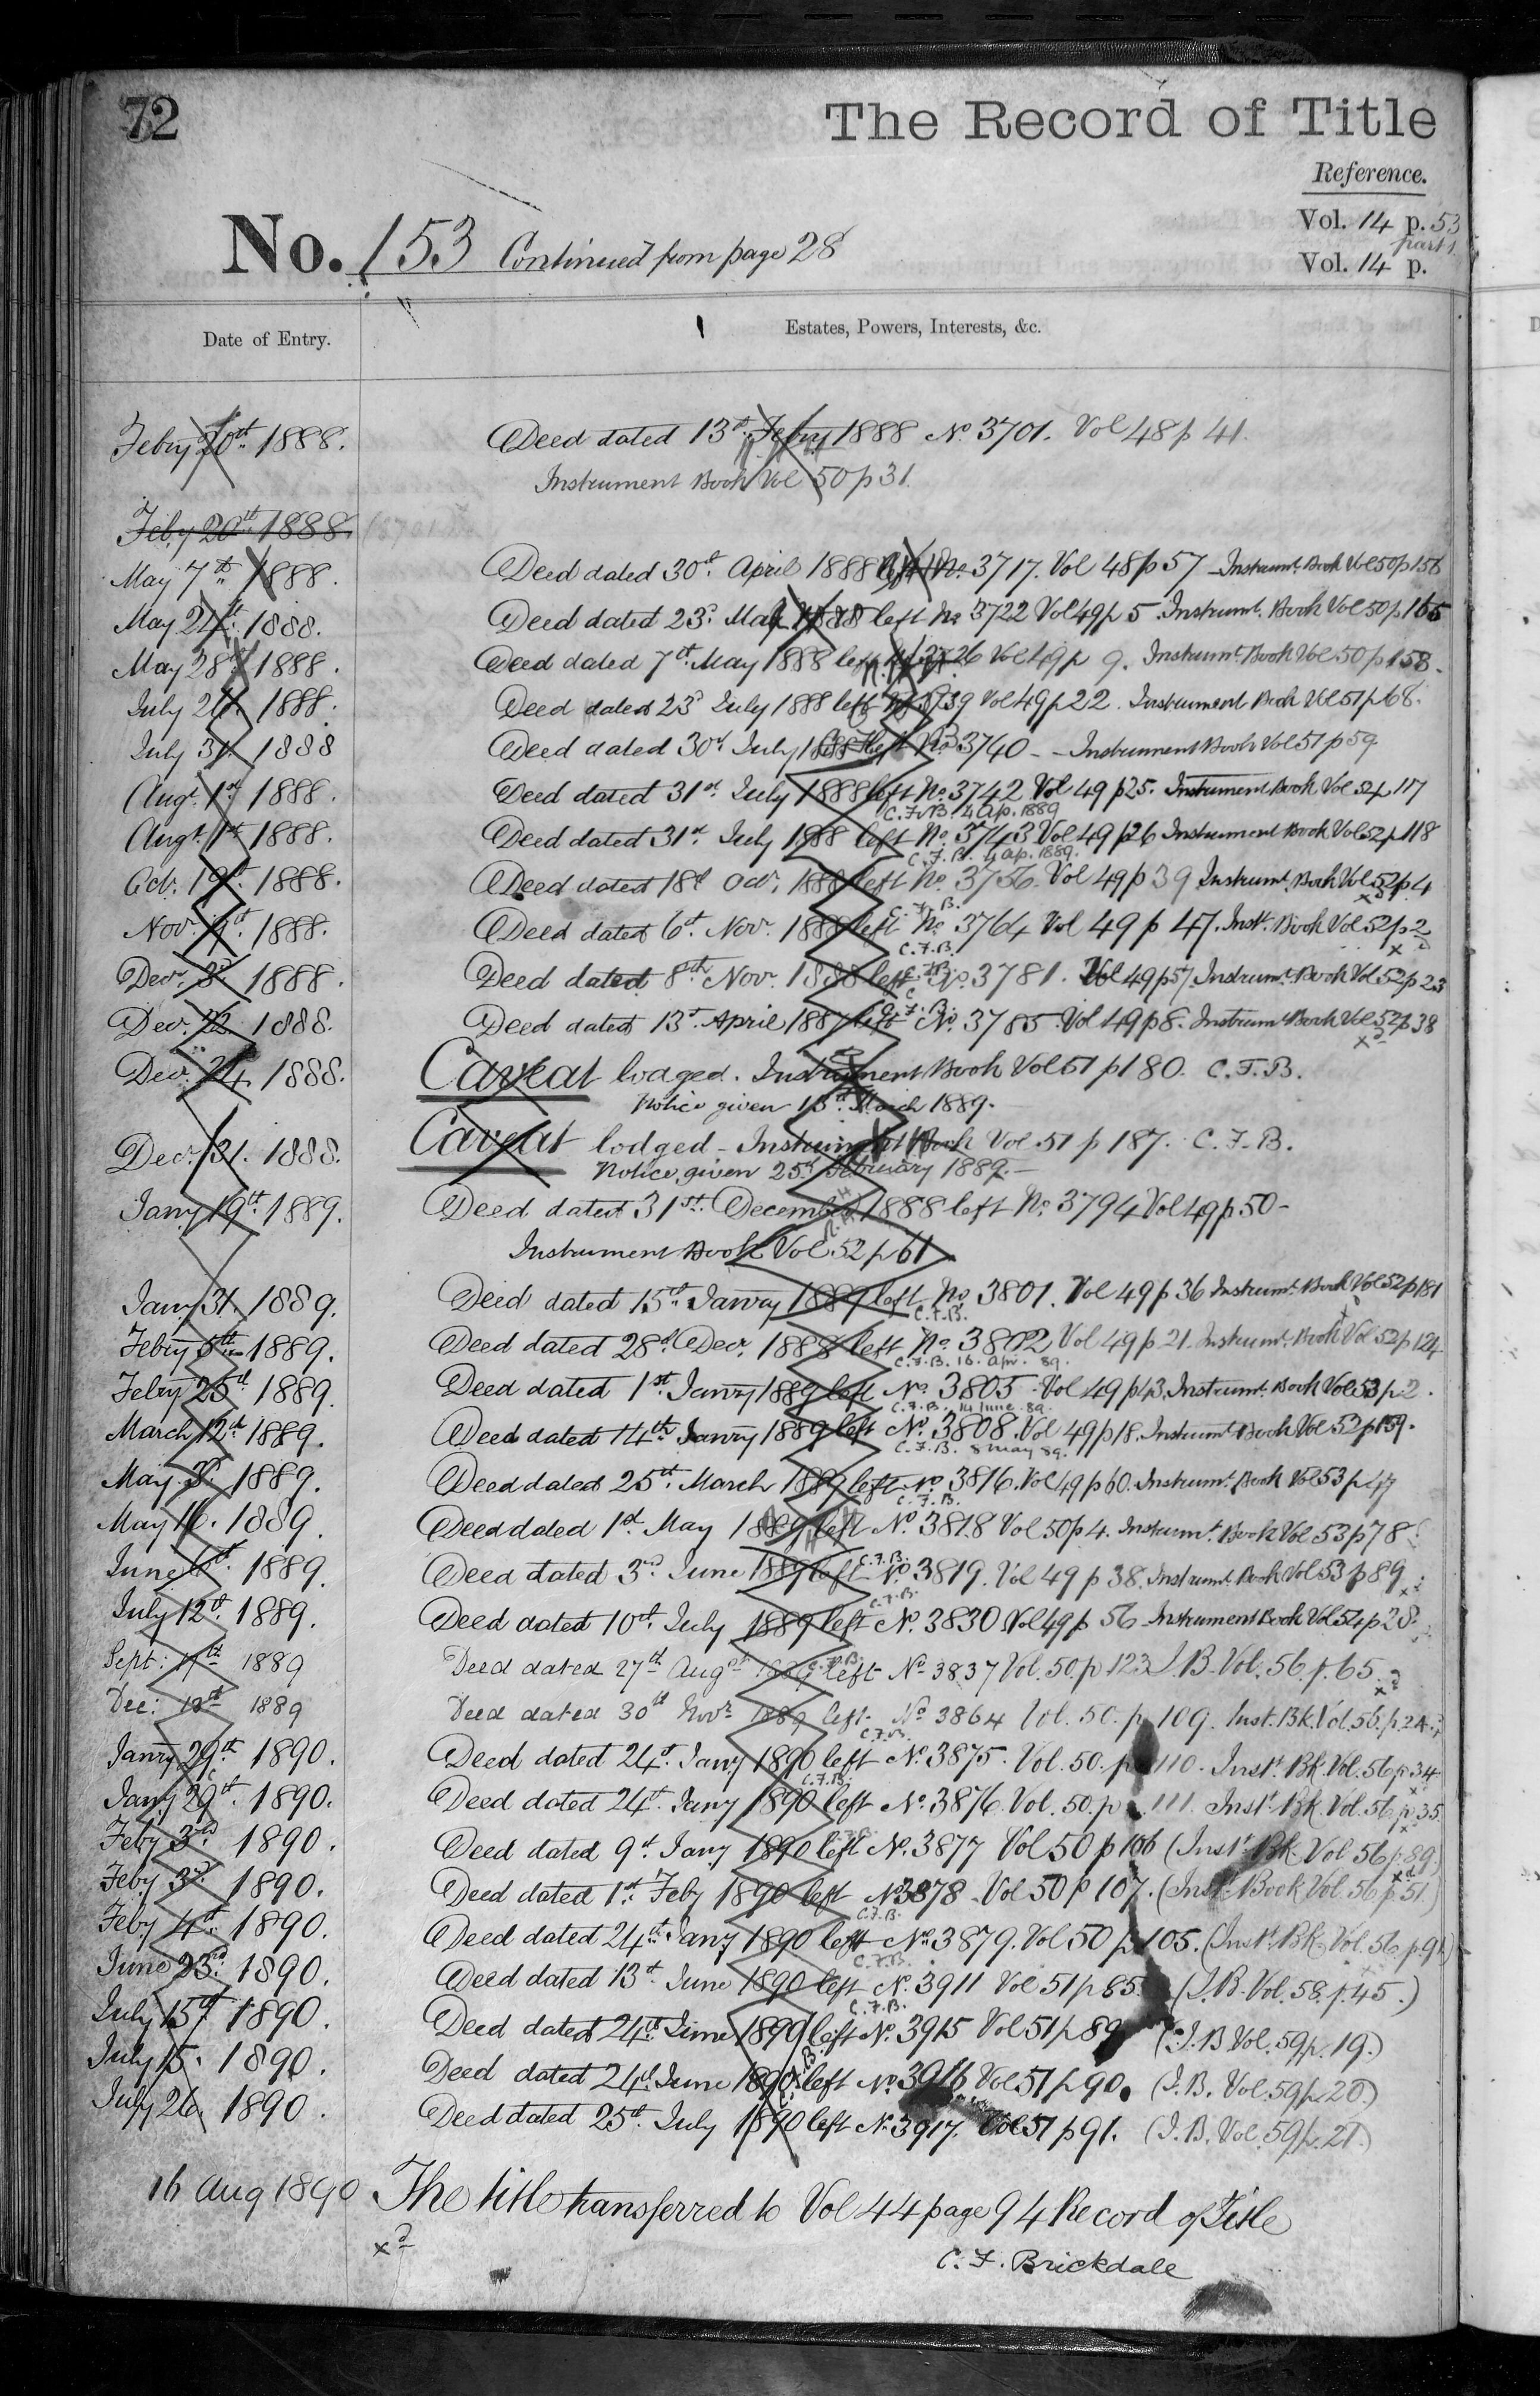 72
The Record of Title
Reference.
Vol. 14 p. 53
part 1
Vol. 14 p.
No. 153 Continued from page 28
Date of Entry.
Estates, Powers, Interests, &c.
Febry 20th 1888. Deed dated 13th Febry 1888 No 3701. Vol 48 p 41.
Instrument Book Vol 50 p 31.
Feby 20th 1888.
May 7th 1888. Deed dated 30th April 1888 left No. 3717. Vol 48 p 57 Instrumt Book Vol 50 p 156
May 24th 1888. Deed dated 23d May 1888 left No 3722 Vol 49 p 5 Instrumt. Book Vol 50 p 165
May 28th 1888. Deed dated 7th May 1888 left 3726 Vol 49 p 9. Instrumt Book Vol 50 p 158.
July 24. 1888. Deed dated 23d July 1888 left 3739 Vol 49 p 22. Instrument Book Vol 51 p 68.
July 31. 1888 Deed dated 30th July 1888 left No 3740 - - Instrument Book Vol 51 p 59
Augt. 1st 1888. Deed dated 31st July 1888 left No. 3742 Vol 49 p 25. Instrument Book Vol 52 p 117
C.F.B. 4 Ap. 1889
Augt. 1st 1888. Deed dated 31st July 1888 left No. 3743 Vol 49 p 26 Instrument Book Vol 52 p 118
C.F.B. 4 Ap. 1889.
Oct. 19th 1888. Deed dated 18th Oct. 1888 left No. 3756. Vol 49 p 39 Instrumt. Book Vol 52 p 4
C.F.B.
Nov. 1888. Deed dated 6th Nov. 1888 left No 3764 Vol 49 p 47. Inst. Book Vol 52 p 2
C.F.B.
Decr. 1888. Deed dated 8th Nov. 1888 left No. 3781. Vol 49 p 57. Instrumt. Book Vol 52 p 23
C.F.B.
Dec. 22. 1888. Deed dated 13th April 1887 left No. 3785 Vol 49 p 8. Instrumt Book Vol 52 p 38
Dec. 24. 1888. Caveat lodged. Instrument Book Vol 51 p 180. C.F.B.
Notice given 15th March 1889.
Dec. 31. 1888. Caveat lodged - Instrument Book Vol 51 p 187. C.F.B.
Notice given 25th February 1889.
Janry 19th 1889. Deed dated 31st. December 1888 left No. 3794 Vol 49 p 50 -
Instrument Book Vol 52 p 61
Janry 31. 1889. Deed dated 15th Janry 1889 left No 3801. Vol 49 p 36 Instrumt. Book Vol 52 p 181
C.F.B.
Febry 5th 1889. Deed dated 28th Decr. 1888 left No. 3802 Vol 49 p 21. Instrumt. Book Vol 52 p 124
C.F.B. 16. Apr. 89.
Febry 25th 1889. Deed dated 1st. Janry 1889 left No. 3805 Vol 49 p 43. Instrumt. Book Vol 53 p 2.
C.F.B. 14 June 89.
March 12th 1889. Deed dated 14th Janry 1889 left No. 3808. Vol 49 p 18. Instrumt Book Vol 52 p 159.
C.F.B. 8 May 89.
May 1889. Deed dated 25th March 1889 left No 3816. Vol 49 p 60. Instrumt. Book Vol 53 p 47
C.F.B.
May 16. 1889. Deed dated 1st May 1889 left No. 3818 Vol 50 p 4. Instrumt. Book Vol 53 p 78
June 6th 1889. Deed dated 3rd June 1889 left No. 3819. Vol 49 p 38. Instrumt. Book Vol 53 p 89
C.F.B.
July 12th 1889. Deed dated 10th July 1889 left No. 3830 Vol 49 p 56 Instrument Book Vol 54 p 28
C.F.B.
Sept: 17th 1889 Deed dated 27th Augst 1889 left No 3837 Vol. 50. p 123 I.B. Vol. 56. p. 65
Dec: 12th 1889 Deed dated 30th Novr 1889 left No 3864 Vol. 50. p 109. Inst. Bk. Vol. 56. p. 24.
C.F.B.
Janry 29th 1890. Deed dated 24th Janry 1890 left No. 3875. Vol. 50. p 110. Inst. Bk. Vol. 56 p 34
C.F.B.
Janry 29th 1890. Deed dated 24th Janry 1890 left No. 3876 Vol. 50. p 111. Inst. Bk. Vol. 56 p 35
Feby 3rd 1890. Deed dated 9th Janry 1890 left No. 3877 Vol 50 p 106 (Inst. Bk. Vol 56 p 89)
Feby 3rd 1890. Deed dated 1st Feby 1890 left No. 3878 Vol 50 p 107. (Inst. Book Vol. 56 p 51.)
C.F.B.
Feby 4th 1890. Deed dated 24th Janry 1890 left No. 3879. Vol 50 p 105. (Inst. Bk. Vol. 56 p. 91)
C.F.B.
June 23d 1890. Deed dated 13th June 1890 left No. 3911 Vol 51 p 85. (I.B. Vol. 58. p. 45.)
C.F.B.
July 15th 1890. Deed dated 24th June 1890 left No. 3915 Vol 51 p 89 (I.B Vol. 59 p. 19.)
July 15. 1890. Deed dated 24th June 1890 left No. 3916 Vol 51 p 90. (I.B. Vol. 59 p. 20.)
July 26. 1890. Deed dated 25th July 1890 left No. 3917. Vol 51 p 91. (I.B. Vol. 59 p. 21.)
16 Aug 1890 The title transferred to Vol 44 page 94 Record of Title
C. F. Brickdale